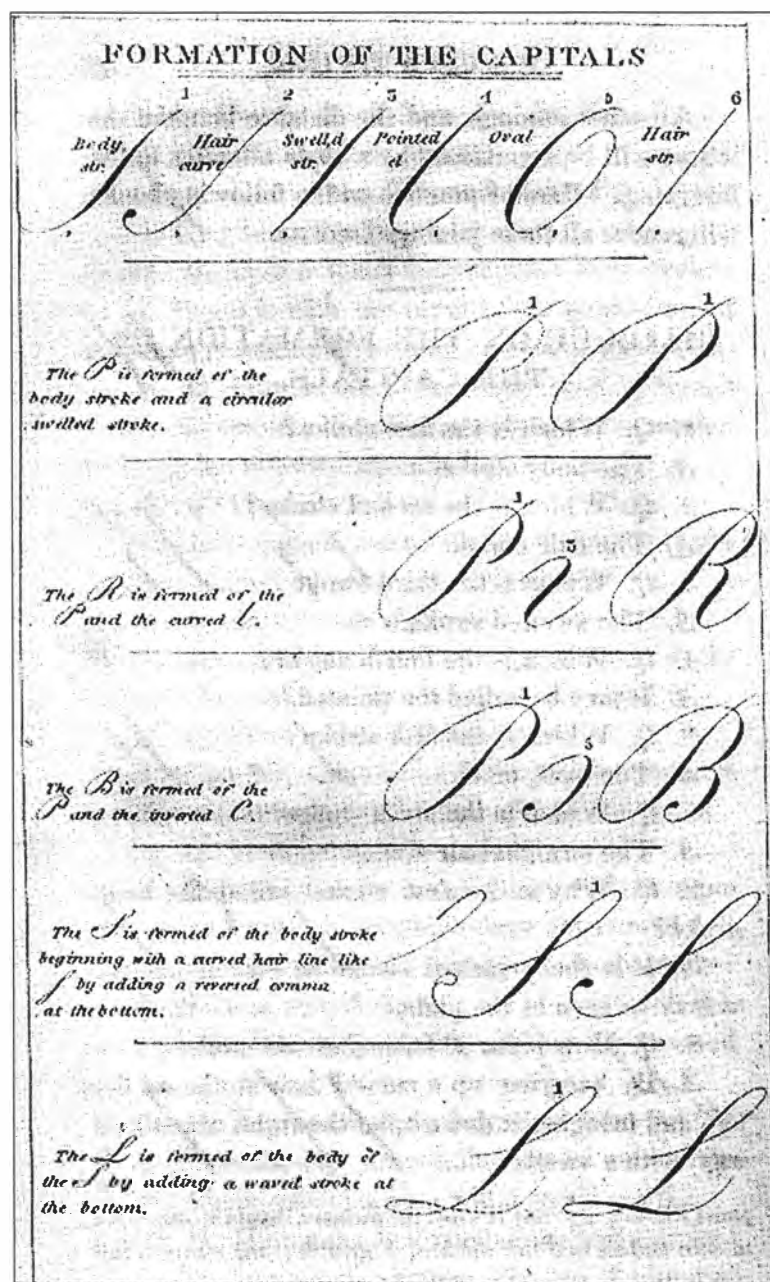 FORMATION OF THE CAPITALS
1 2 3 4 5 6
Body, Hair Swell,d Pointed Oval Hair
str. curve str. str.
1 1
The P is formed of the
body stroke and a circular
swelled stroke.
1 5
P R
The R is formed of the
P and the curved l.
1 5
P B
The B is formed of the
P and the inverted C.
1
S S
The S is formed of the body stroke
beginning with a curved hair line like
by adding a reversed comma
at the bottom.
1
L L
The L is formed of the body of
the S by adding a waved stroke at
the bottom.